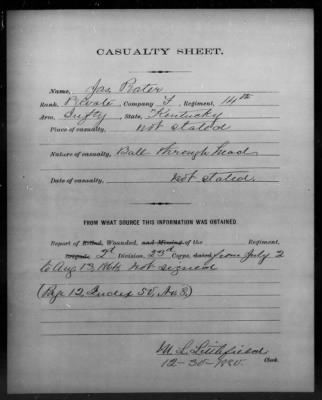 CASUALTY SHEET.
Name, Jas Prater
Rank, Private, Company F, Regiment, 14th
Arm, Infty, State, Kentucky
Place of casualty, Not stated
Nature of casualty, Ball through head
Date of casualty, Not stated.
FROM WHAT SOURCE THIS INFORMATION WAS OBTAINED.
Report of Killed, Wounded, and Missing of the Regiment,
Brigade 2d Division, 23rd Corps, dated from July 2
to Aug 13 1864 not signed
(Pge 12 Index S.V. No 8)
M. L. Littlefield
12-30-1880. Clerk.